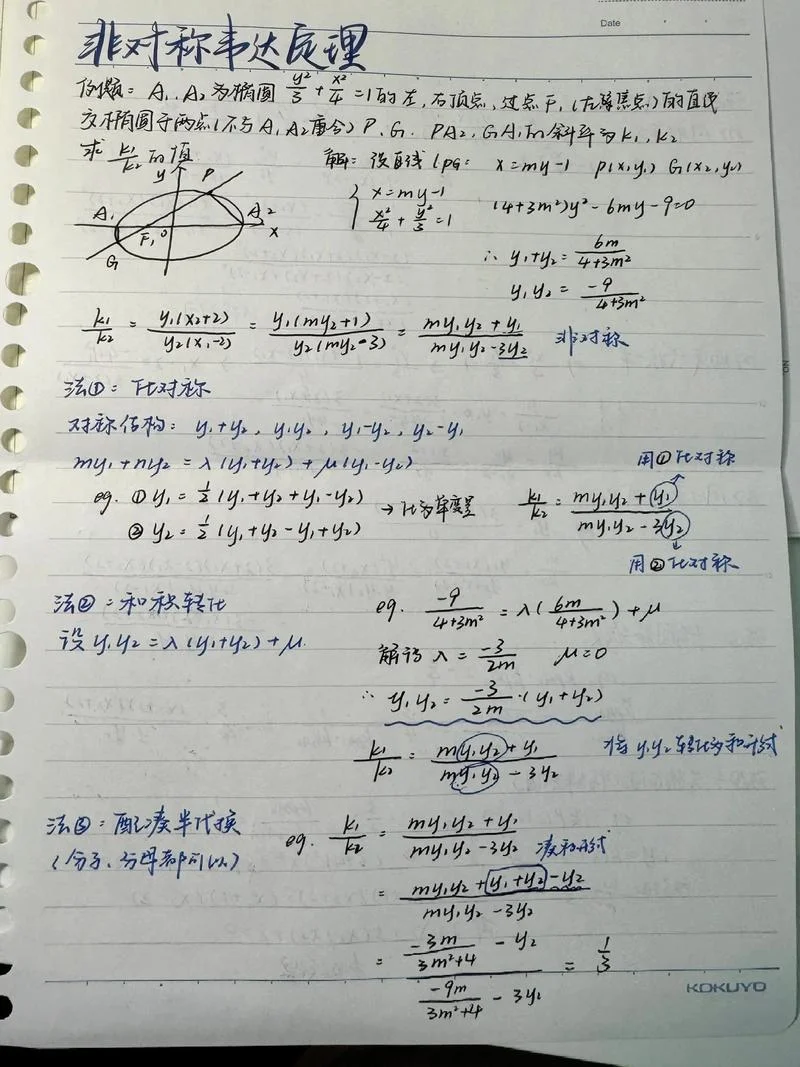 Date
非对称韦达定理
例题: A₁、A₂为椭圆 y²/3 + x²/4 = 1的左,右顶点,过点F₁(左焦点)的直线
交椭圆于两点(不与A₁A₂重合) P、G. PA2, GA1的斜率为k₁、k₂
求 k₁/k₂ 的值
解: 设直线lPG: x=my-1 P(x₁y₁) G(x₂,y₂)
{ x=my-1
x²/4 + y²/3 = 1
(4+3m²)y²-6my-9=0
y P A₁ A2 F₁ O x G
∴ y₁+y₂ = 6m/(4+3m²)
y₁y₂ = -9/(4+3m²)
k₁/k₂ = y₁(x₂+2)/y₂(x₁-2) = y₁(my₂+1)/y₂(my₂-3) = (my₁y₂+y₁)/(my₁y₂-3y₂) 非对称
法①: 化对称
对称结构: y₁+y₂, y₁y₂, y₁-y₂, y₂-y₁
my₁+ny₂ = λ(y₁+y₂)+μ(y₁-y₂)
用①化对称
eg. ① y₁ = ½(y₁+y₂+y₁-y₂)
② y₂ = ½(y₁+y₂-y₁+y₂)
→化为单变量
k₁/k₂ = (my₁y₂+y₁)/(my₁y₂-3y₂)
用②化对称
法②: 和积转化
设 y₁y₂=λ(y₁+y₂)+μ.
eg. -9/(4+3m²) = λ(6m/(4+3m²))+μ
解得 λ = -3/2m μ=0
∴ y₁y₂ = -3/2m·(y₁+y₂)
k₁/k₂ = (my₁y₂+y₁)/(my₁y₂-3y₂) 将y₁y₂转化为和形式
法③: 配凑半代换
(分子、分母都可以)
eg. k₁/k₂ = (my₁y₂+y₁)/(my₁y₂-3y₂) 凑和形式
= (my₁y₂+y₁+y₂-y₂)/(my₁y₂-3y₂)
= (-3m/(3m²+4) - y₂)/(-9m/(3m²+4) - 3y₂) = 1/3
KOKUYO